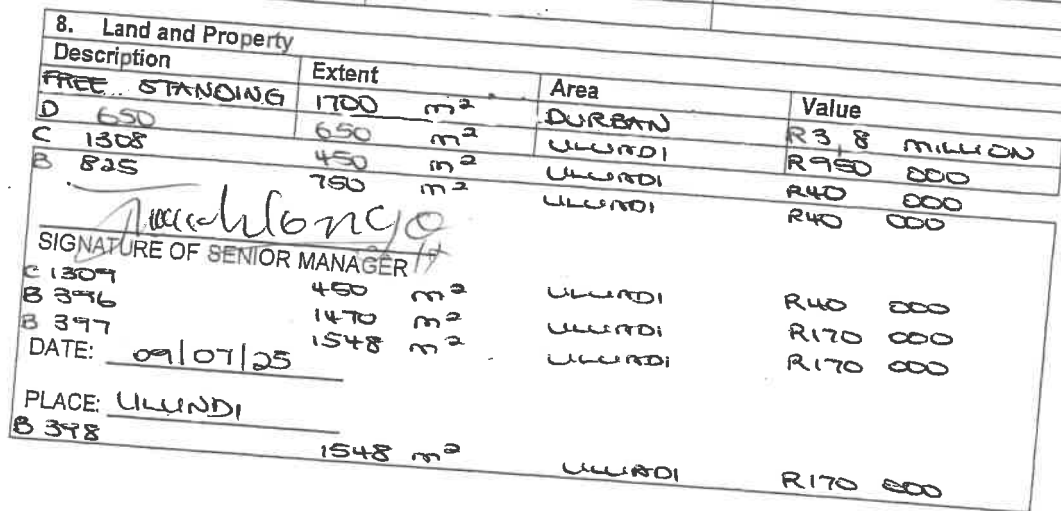 8. Land and Property
Description Extent Area Value
FREE STANDING 1700 m² DURBAN R3,8 MILLION
D 650 650 m² ULUNDI R950 000
C 1308 450 m² ULUNDI R40 000
B 825 750 m² ULUNDI R40 000
SIGNATURE OF SENIOR MANAGER
C 1309 450 m² ULUNDI R40 000
B 396 1470 m² ULUNDI R170 000
B 397 1548 m² ULUNDI R170 000
DATE: 09/07/25
PLACE: ULUNDI
B 398 1548 m² ULUNDI R170 000